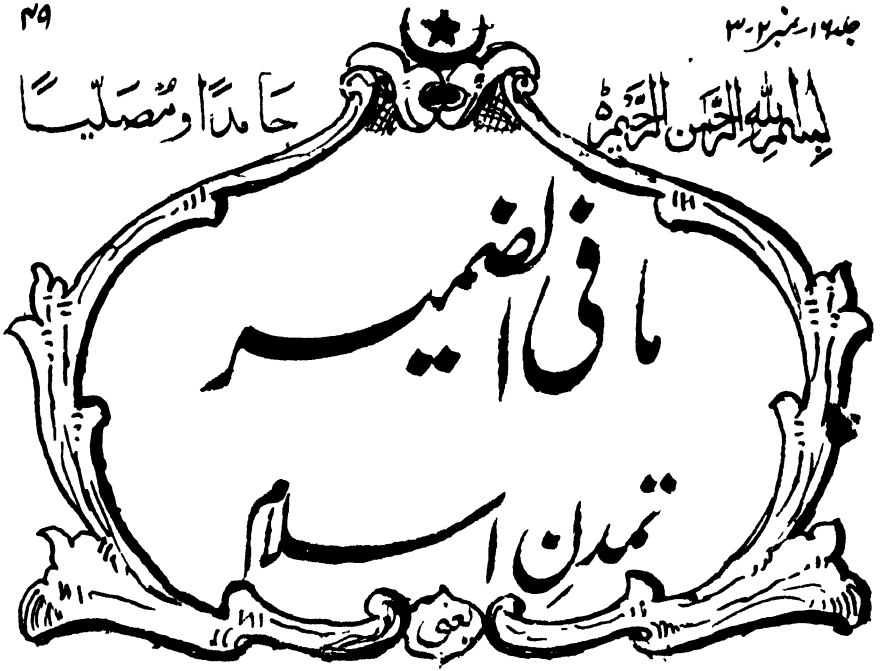 جلد ۱۶۔ نمبر ۲۔۳
۴۹
بِسْمِ اللهِ الرَّحْمٰنِ الرَّحِيْمِ
حَامِدًا وَمُصَلِّيًا
ما فی الضمیر
تمدن اسلام
یعنی